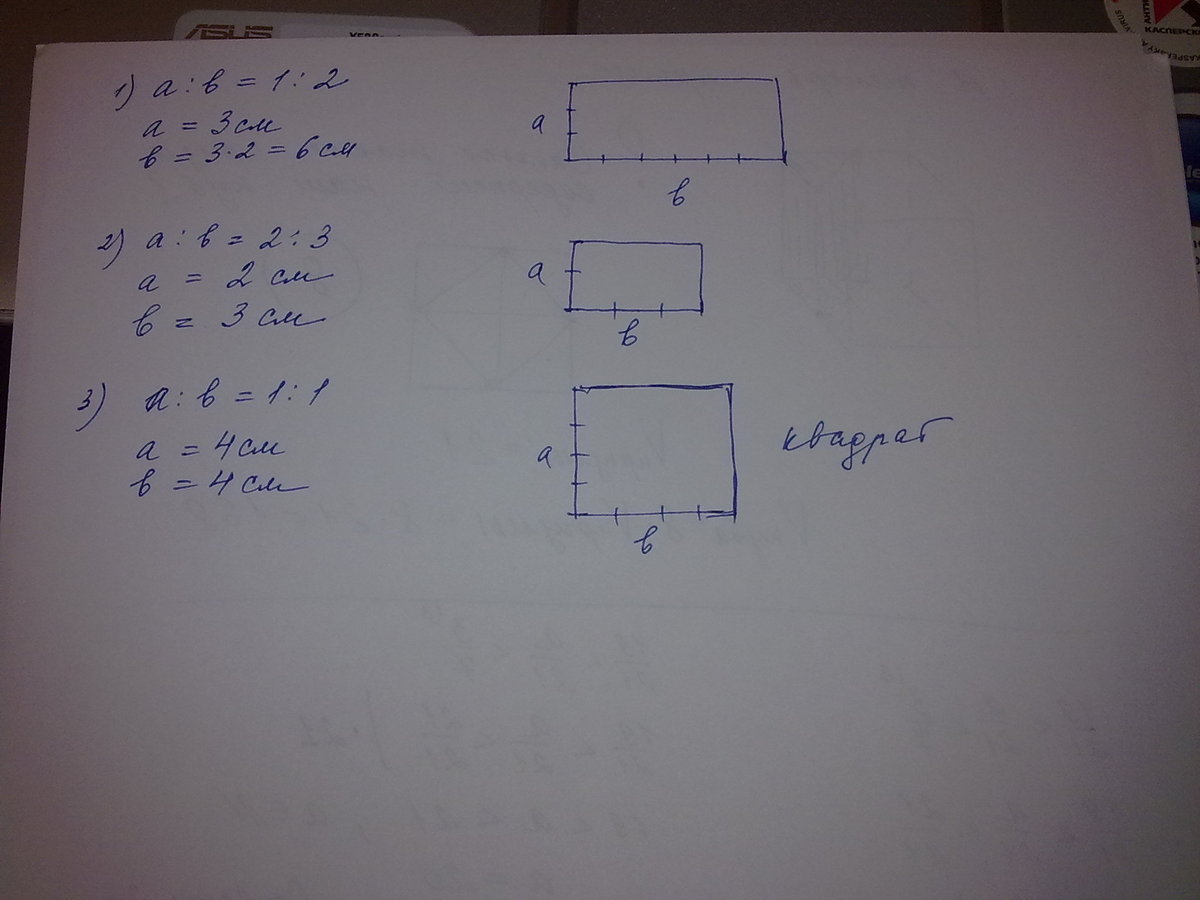 ASUS
КАСПЕРСК
1) a : в = 1 : 2
a = 3 см
в = 3·2 = 6 см
a
в
2) a : в = 2 : 3
a = 2 см
в = 3 см
a
в
3) a : в = 1 : 1
a = 4 см
в = 4 см
a
в
квадрат